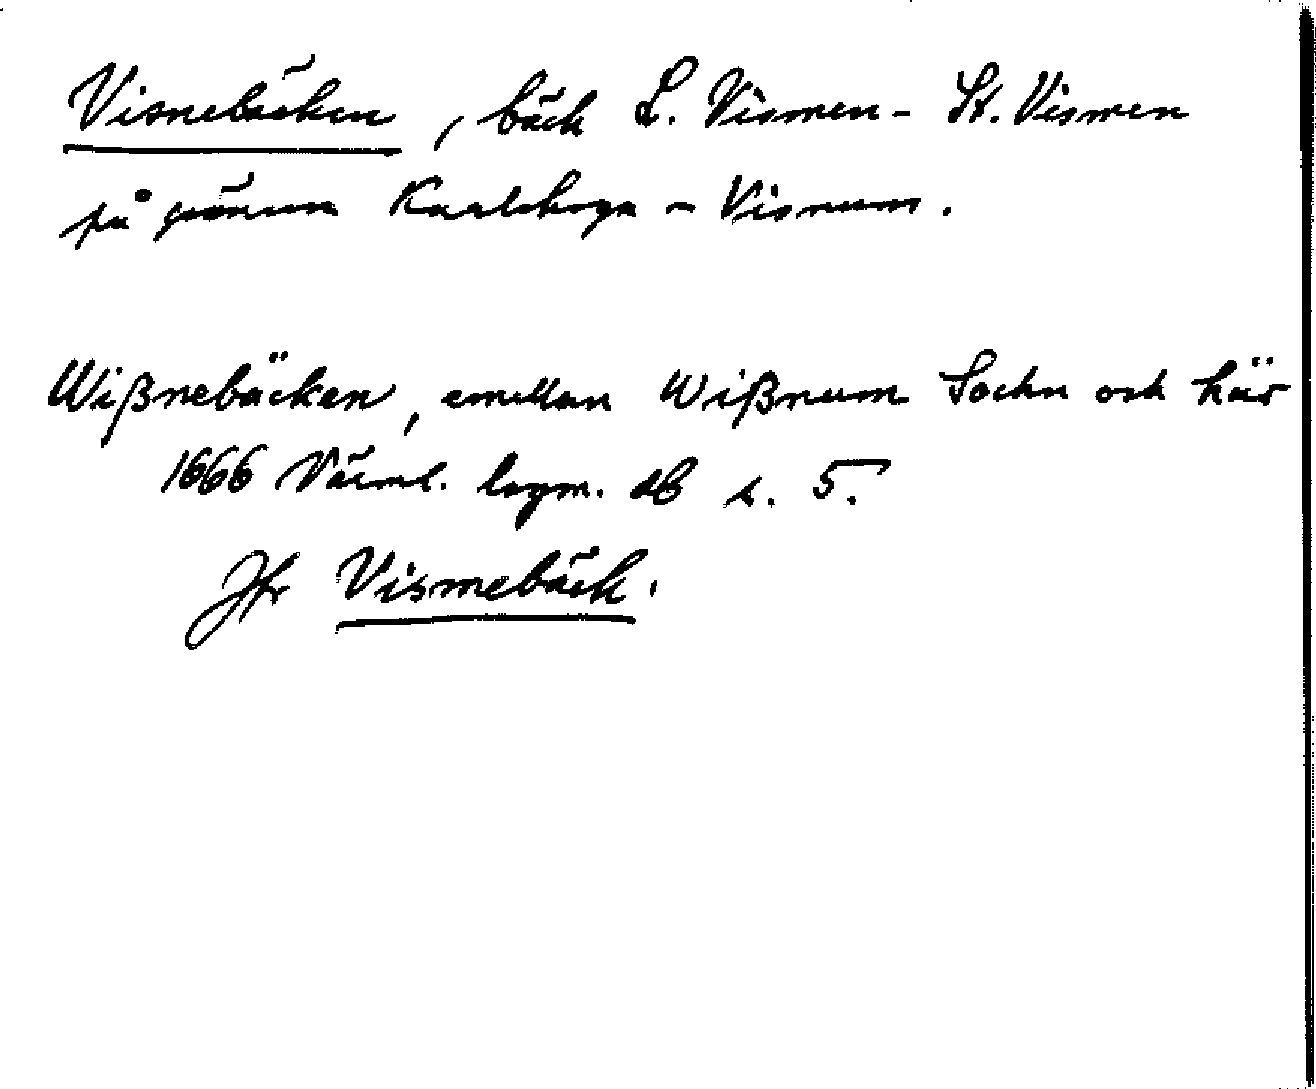 Visnebäcken, bäck L. Vismen - St. Vismen
på gränsen Karlskoga - Visnum.
Wißnebäcken, emellan Wißnum Sochn och här
1666 Värml. lagm. db s. 5.
Jfr Vismebäck.